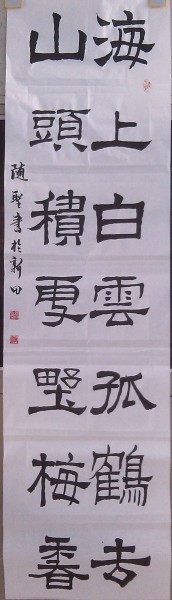 海上白雲孤鶴去
山頭積更墅梅香
随聖書於新田